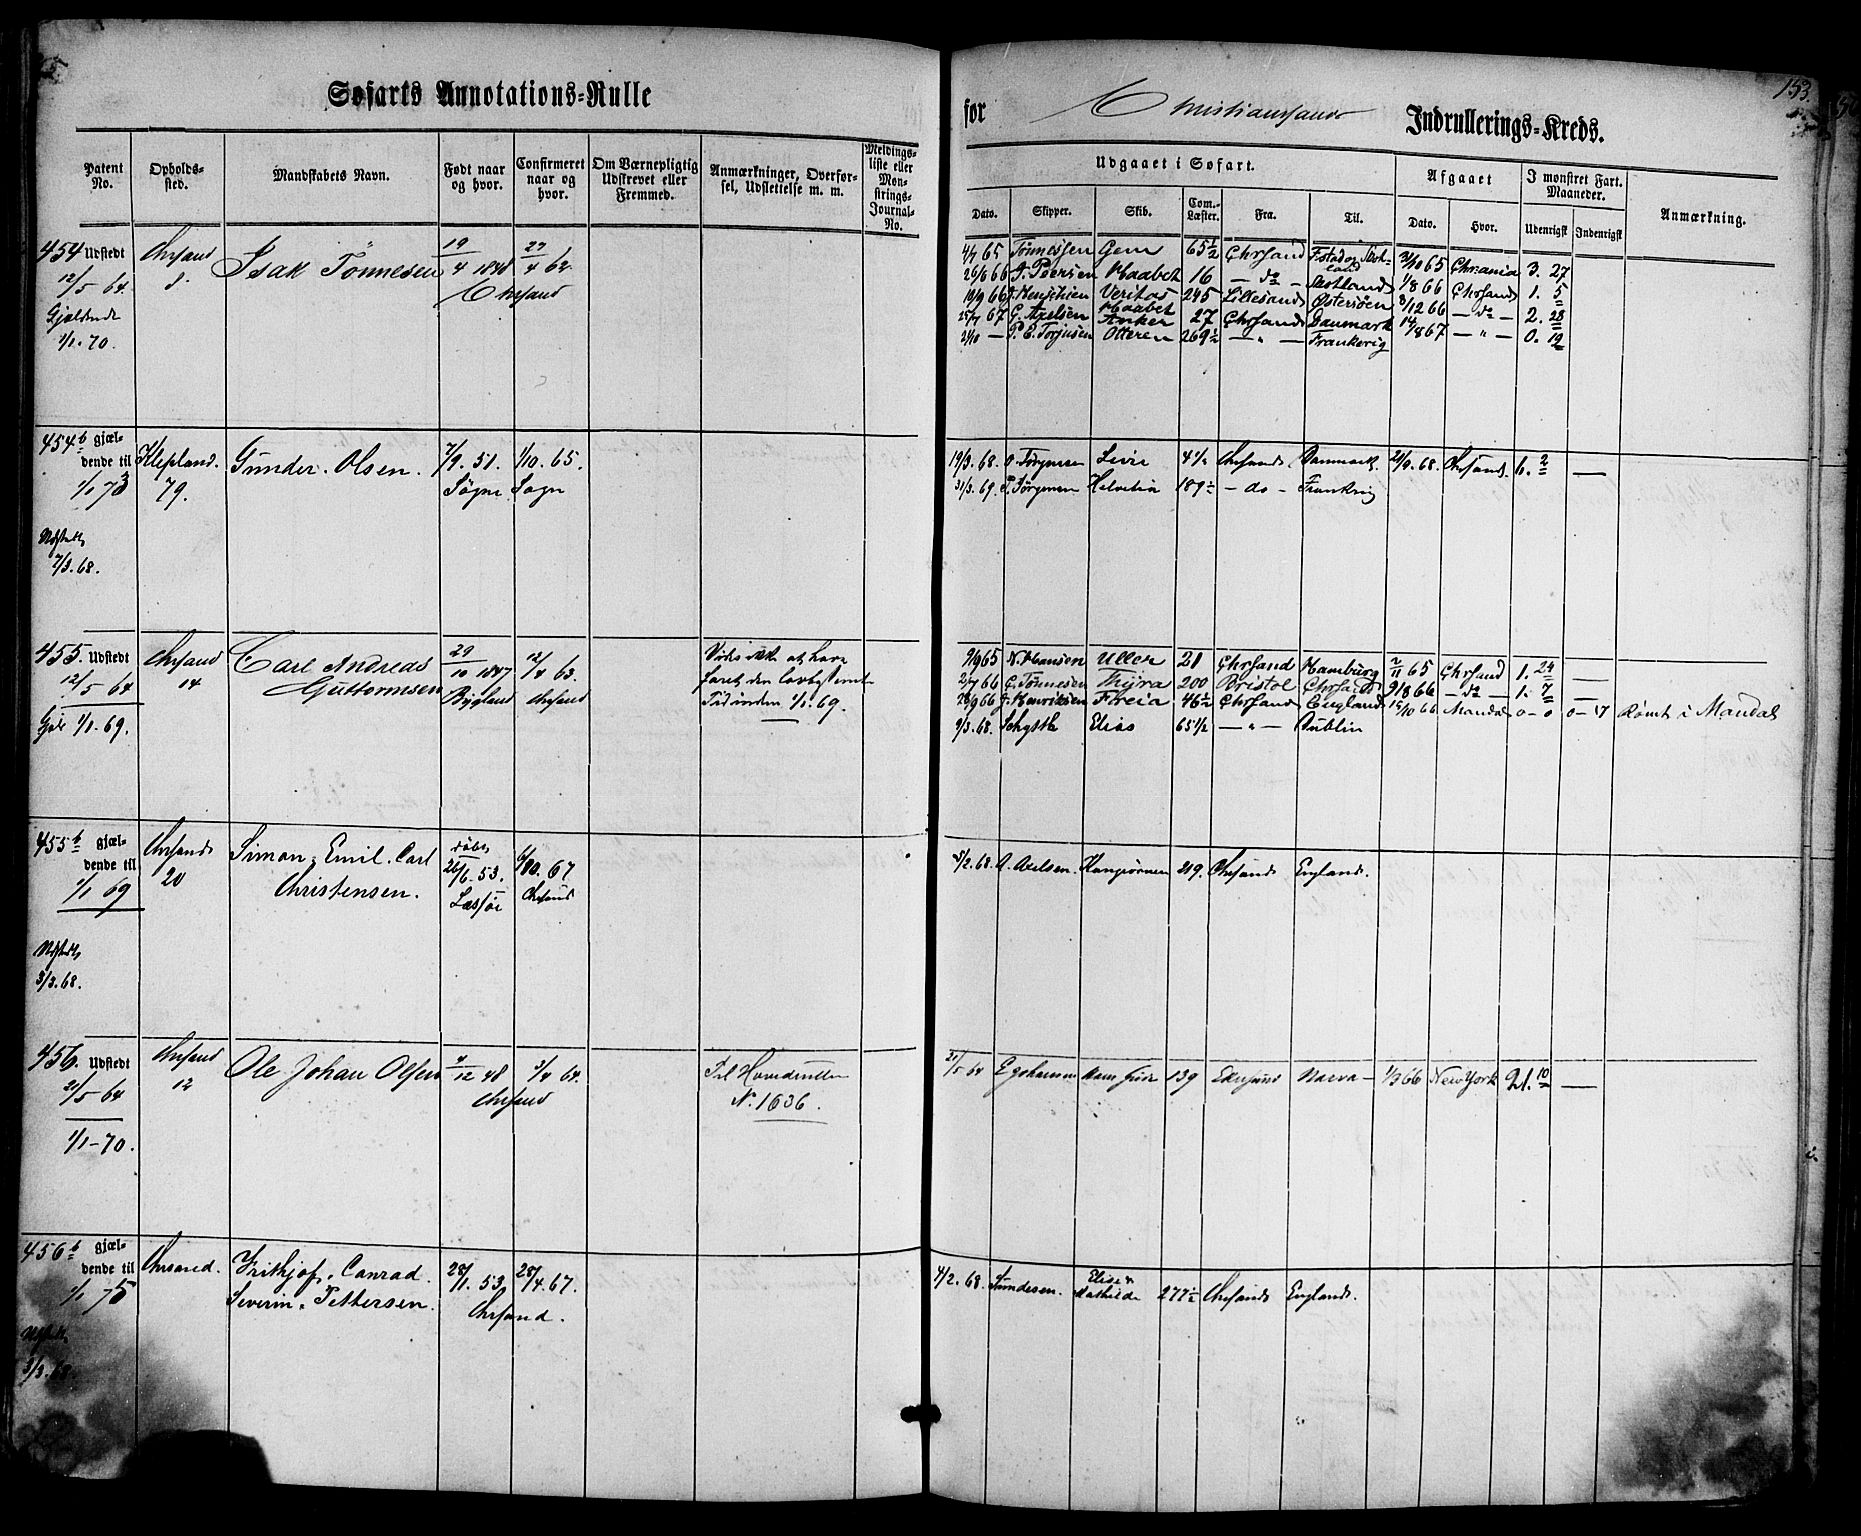 Søfarts Annotations-Rulle
for Christiansands Indrullerings-Kreds.
153.
Patent No.
Opholds-sted.
Mandskabets Navn.
Født naar og hvor.
Confirmeret naar og hvor.
Om Værnepligtig Udskrevet eller Fremmed.
Anmærkninger, Overførsel, Udslettelse m. m.
Meldings-liste eller Mønstrings-Journal-No.
Udgaaet i Søfart.
Afgaaet
I mønstret Fart. Maaneder.
Anmærkning.
Dato. Skipper. Skib. Com.-Læster. Fra. Til. Dato. Hvor. Udenrigsk Indenrigsk
454 Udstedt Chrsand Isak Tönnesen 19/4 1848 27/4 62
12/5 64.
Chrsand
Gjældende
1/1. 70.
4/7 65 Tönnessen Gem 65½ Chrsand 31/10 65 Chrania 3. 27
26/6 66 J. Peersen Haabet 16 — do — Skotland 1/8 66 Chrsand 1. 5
10/9 66 Veritas 245 Lillesand Østersöen 8/12 66 — do — 2. 28
25/7 67 G. Axelsen Haabet Anker 27 Chrsand Danmark 14/8 67 — " — 0. 19
21/10 — P. E. Torjusen Otteren 269½ — " — Frankerig
454 b gjældende til Klepland. Gunder. Olsen. 7/9. 51. 1/10. 65.
1/1 73 79. Sögne Sogn
Udstedt
7/3. 68.
19/3. 68. O. Törgensen 4½ Chrsand Danmark. 21/9. 68. Chrsand. 6. 2
31/3. 69. T. Jörgensen Helvetia 189½ — do — Frankrig
455. Udstedt Chrsand Carl Andreas 29/10 1847 12/4 63.
12/5 64 14 Guttormsen Bygland Chrsand
Gjæl 1/1. 69.
Vides ikke at have
faret den lovbestemte
Tid inden 1/1. 69.
9/9 65 N. Hansen Uller 21 Chrsand Hamburg 2/11 65 Chrsand 1. 24 —
2/7 66 G. Tönnesen Thyra 200 Bristol Chrsand 9/8 66 — do — 1. 7 —
28/9 66 J. Henriksen Freia 46½ Chrsand England 15/10 66 Mandal 0 - 0 0 - 17 Rømt i Mandal
9/3. 68. Schytte Elias 65 1/2 — " — Dublin
455 b gjældende til Chrsand Simon, Emil. Carl döbt 26/6. 53. 6/10. 67
1/1 69 20 Christensen. Læssöe Chrsand
Udstedt
3/3. 68.
5/2. 68. A. Axelsen. 219. Chrsand England.
456. Udstedt Chrsand Ole Johan Olsen 4/12 48 3/4 64.
21/5 64 12 Chrsand
1/1-70.
Til Hovedrullen
N. 1636.
21/5 64 Hans Gude 139 Narva 1/3 66 New York 21. 10 —
456 b gjældende til Chrsand. Frithjof, Conrad. 28/1. 53. 28/4. 67.
1/1 75 Severin, Pettersen. Chrsand.
Udstedt
3/3. 68.
4/2. 68. Elise & Mathilde 277½ Chrsand England.